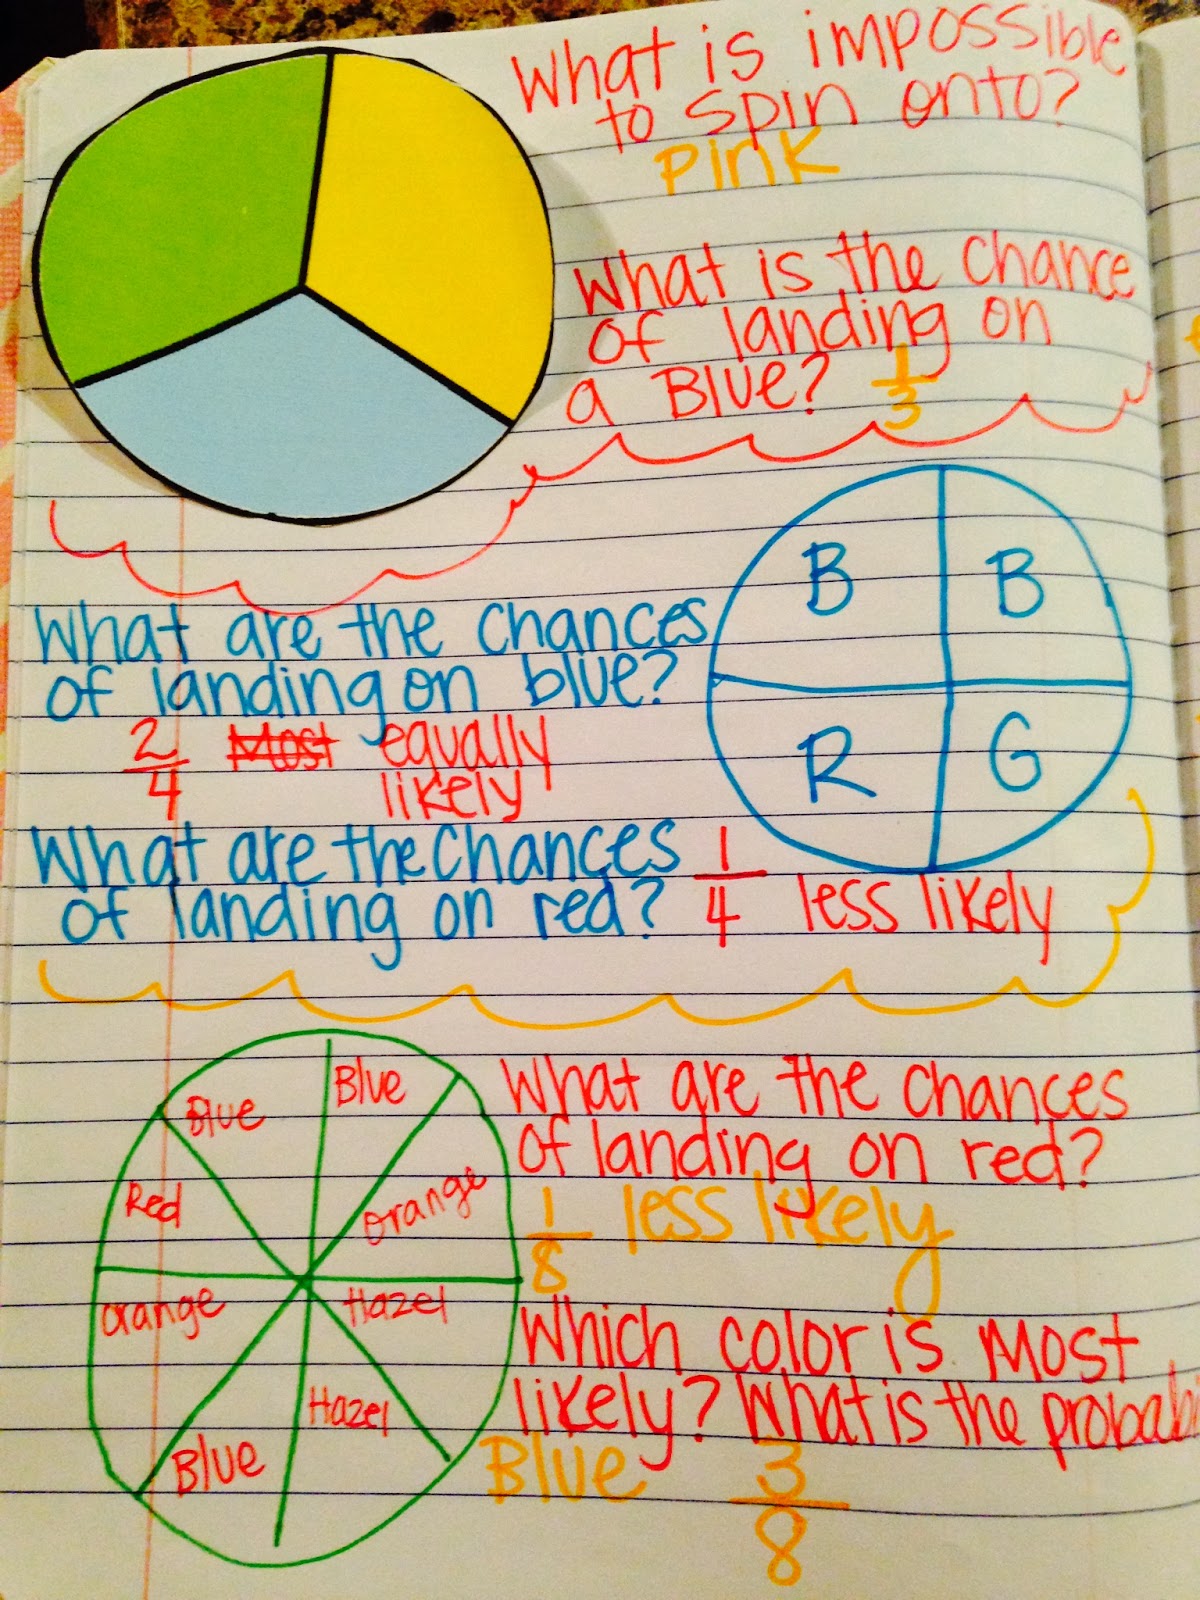 What is impossible
to spin onto?
Pink
What is the chance
of landing on
a Blue? 1/3
B B
R G
What are the chances
of landing on blue?
2/4 Most equally
likely
What are the chances
of landing on red? 1/4 less likely
Blue Blue
Red orange
orange Hazel
Blue Hazel
What are the chances
of landing on red?
1/8 less likely
Which color is most
likely? What is the probabi
Blue 3/8